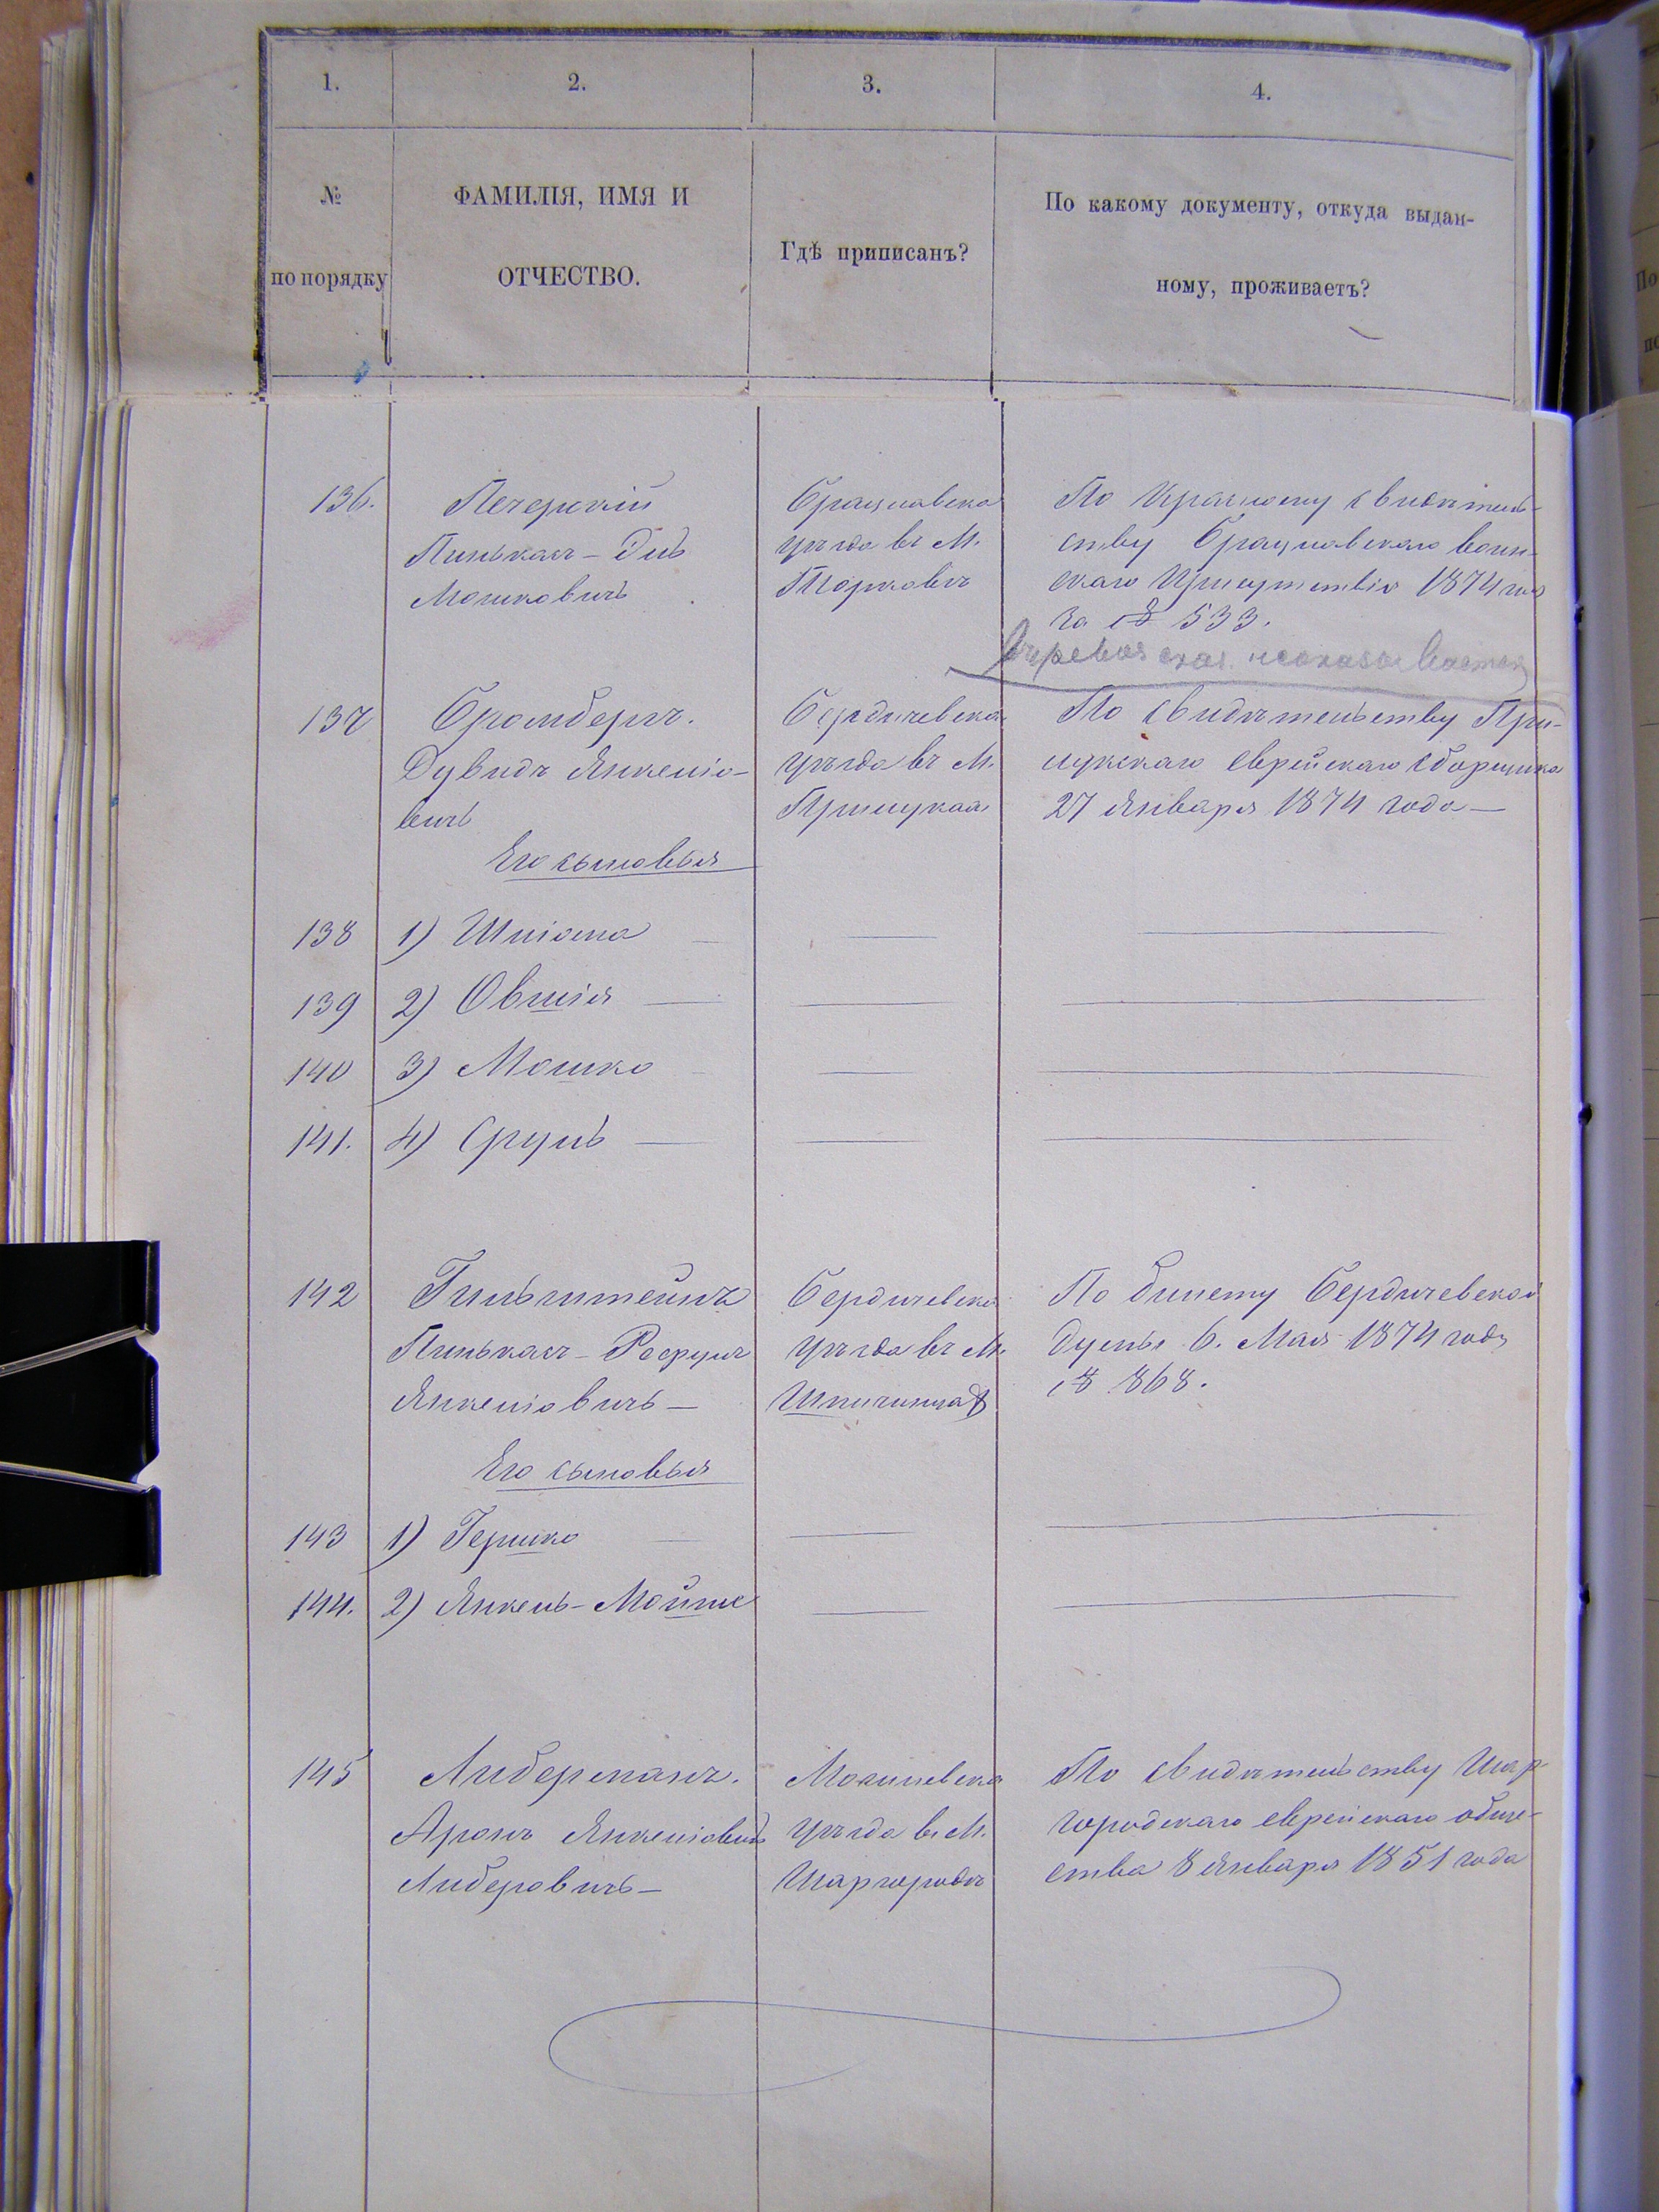 1. 2. 3. 4.
№
по порядку
ФАМИЛІЯ, ИМЯ И
ОТЧЕСТВО.
Гдѣ приписанъ?
По какому документу, откуда выдан-
ному, проживаетъ?
136.
Печерскій
Пинькасъ - Дид
Мошковичъ
Брацлавска
уѣзда въ М.
Торковкѣ
По Призывному свидѣтель-
ству Брацлавскаго воин-
скаго Присутствія 1874 года
За № 533.
137
Бромбергъ.
Дувидъ Янкеліо-
вичъ
Бердичевска
уѣзда въ М.
Прилукая
По свидѣтельству При-
лукскаго еврейскаго сборщика
27 Января 1874 года —
Его сыновья
138 1) Шліома —
139 2) Овшія —
140 3) Мошко
141. 4) Сруль —
142
Гильштейнъ
Пинькасъ - Рефулъ
Янкеліовичъ —
Бердичевска
уѣзда въ М.
Шпичинца
По билету Бердичевской
Думы 6. Мая 1874 года
№ 868.
Его сыновья
143 1) Гершко
144. 2) Янкель - Мойше
145
Либерманъ.
Аронъ Янкеліовичъ
Либеровичъ —
Могилевска
уѣзда въ М.
Шаргородѣ
По свидѣтельству Шар-
городскаго еврейскаго обще-
ства 8 Января 1851 года